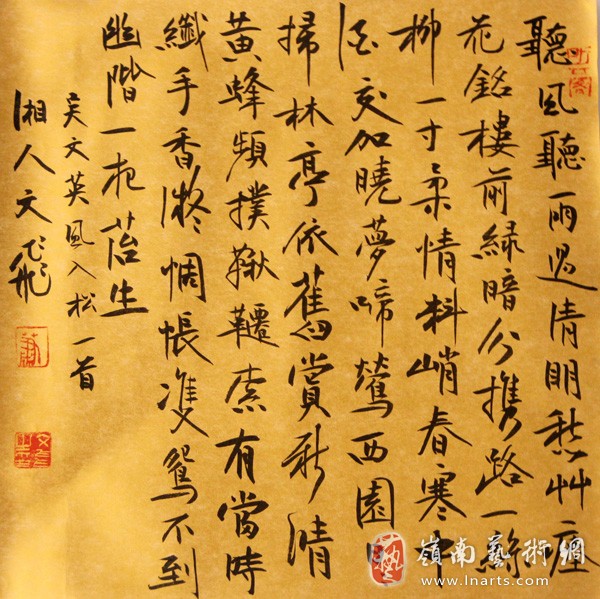 聽風聽雨過清明愁艸瘞
花銘樓前綠暗分攜路一絲
柳一寸柔情料峭春寒中
酒交加曉夢啼鶯西園日
掃林亭依舊賞新晴
黃蜂頻撲鞦韆索有當時
纖手香凝惆悵雙鴛不到
幽階一夜苔生
吳文英風入松一首
湘人文飛
嶺南藝術網
www.lnarts.com